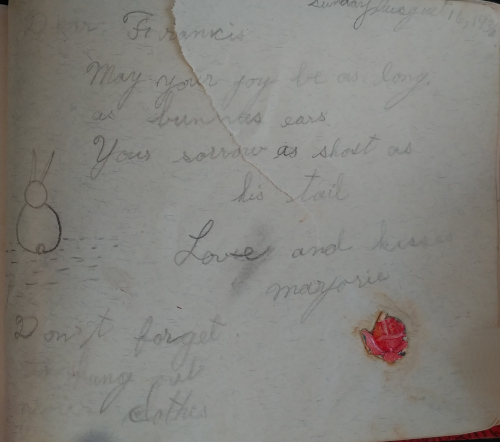 Sunday, August 16,
Dear Francis
May your joy be as long
as bunnus ears
Your sorrow as short as
his tail
Love and kisses
Marjorie
Don't forget
hang out
Clothes